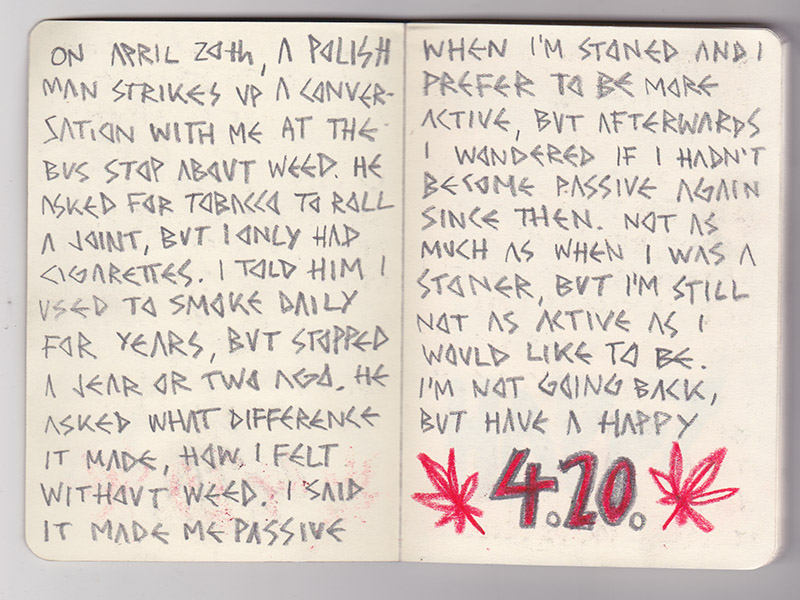 ON APRIL 20th, A POLISH
MAN STRIKES UP A CONVER-
SATION WITH ME AT THE
BUS STOP ABOUT WEED. HE
ASKED FOR TOBACCO TO ROLL
A JOINT, BUT I ONLY HAD
CIGARETTES. I TOLD HIM I
USED TO SMOKE DAILY
FOR YEARS, BUT STOPPED
A JEAR OR TWO AGO. HE
ASKED WHAT DIFFERENCE
IT MADE, HOW I FELT
WITHOUT WEED. I SAID
IT MADE ME PASSIVE
WHEN I'M STONED AND I
PREFER TO BE MORE
ACTIVE, BUT AFTERWARDS
I WONDERED IF I HADN'T
BECOME PASSIVE AGAIN
SINCE THEN. NOT AS
MUCH AS WHEN I WAS A
STONER, BUT I'M STILL
NOT AS ACTIVE AS I
WOULD LIKE TO BE.
I'M NOT GOING BACK,
BUT HAVE A HAPPY
4.20.